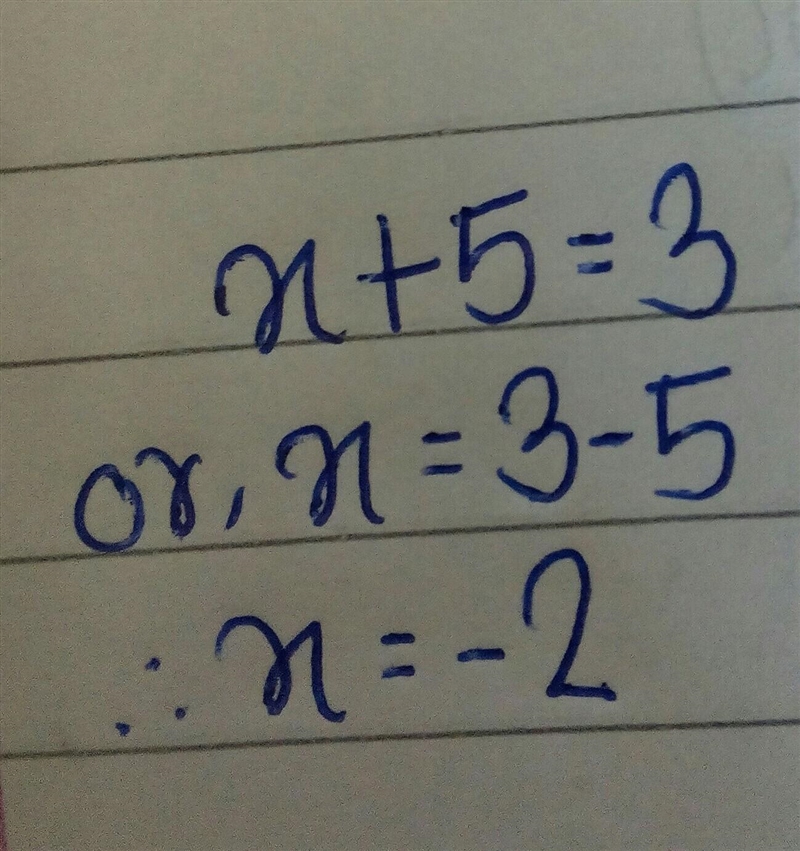 x+5=3
or, x=3-5
∴x=-2